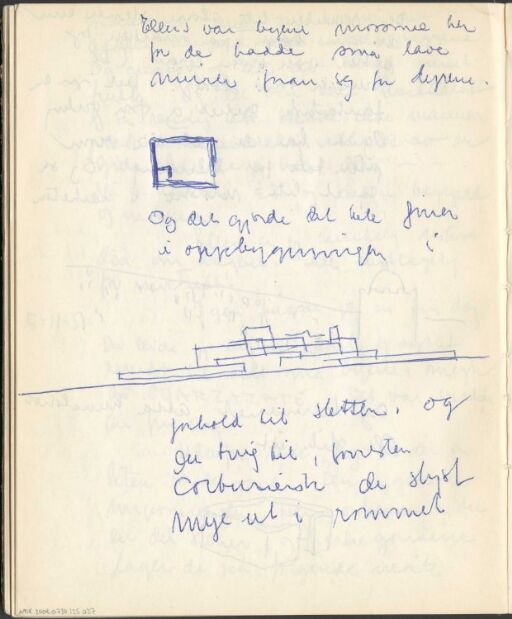 Ellers var byene morsomme her
for de hadde små lave
murer foran seg for dyrene.
Og det gjorde det hele finere
i oppbygningen
forhold til sletten, og
det tung til, forresten
Corbusiersk de skjøt
mye ut i rommet
NMK.2008.0734.125.027